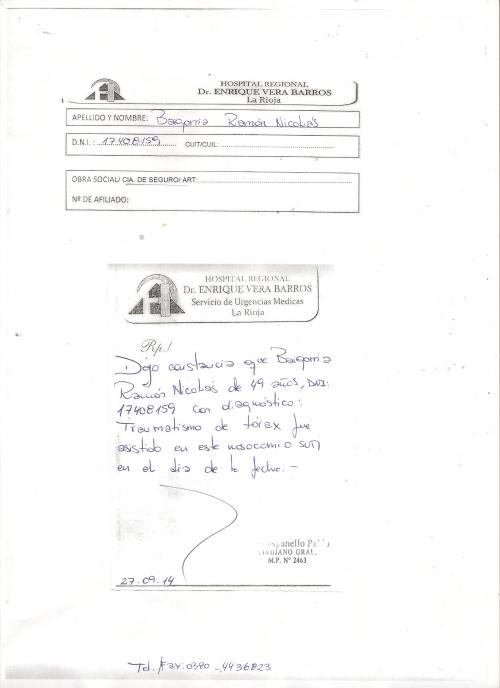 HOSPITAL REGIONAL
Dr. ENRIQUE VERA BARROS
La Rioja
APELLIDO Y NOMBRE: Bazorria Ramón Nicolás
D.N.I. : 17408159 CUIT/CUIL:
OBRA SOCIAL/ CIA. DE SEGURO/ ART:
Nº DE AFILIADO:
HOSPITAL REGIONAL
Dr. ENRIQUE VERA BARROS
Servicio de Urgencias Medicas
La Rioja
Rp./
Dejo constancia que
Ramón Nicolás de 49 años, DNI:
17408159 con diagnóstico:
Traumatismo de tórax fue
asistido en este nosocomio
en el día de la fecha. -
CIRUJANO GRAL.
M.P. Nº 2463
27.09.14
Tel./Fax: 0380 - 4436823